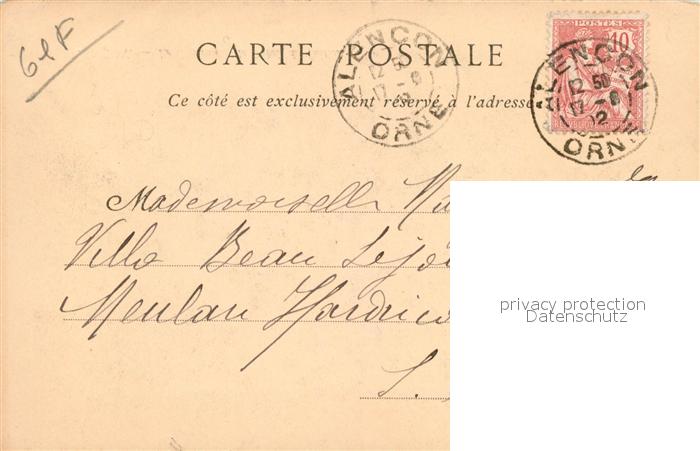 61F
CARTE POSTALE
Ce côté est exclusivement réservé à l'adresse
ALENCON
12 50
17 - 8
02
ORNE
POSTES
10
ALENCON
12 50
17 - 8
02
ORNE
Mademoiselle
Villa Beau Séjou
Meulan Hardrico
S.
privacy protection
Datenschutz